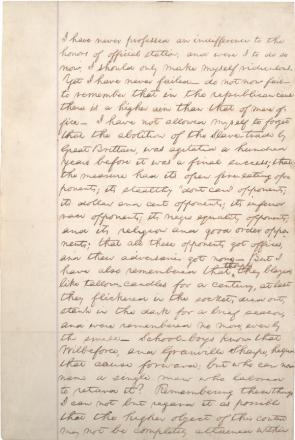 I have never professed an indifference to the
honors of official station; and were I to do so
now, I should only make myself ridiculous.
Yet I have never failed - do not now fail -
to remember that in the republican cause
there is a higher aim than that of mere of-
fice - I have not allowed myself to forget
that the abolition of the Slave-trade by
Great Brittain, was agitated a hundred
years before it was a final success; that
the measure had its open fire-eating op-
ponents; its stealthy "dont care" opponents;
its dollar and cent opponents; its inferior
race opponents; its negro equality opponents;
and its religion and good order oppo-
nents; that all these opponents got offices,
and their adversaries got none - But I
have also remembered that though they blazed,
like tallow-candles for a century, at last
they flickered in the socket, died out,
stank in the dark for a brief season,
and were remembered no more, even by
the smell - School-boys know that
Wilbeforce, and Granville Sharpe, helped
that cause forward; but who can now
name a single man who labored
to retard it? Remembering these things
I can not but regard it as possible
that the higher object of this contest
may not be completely attained within